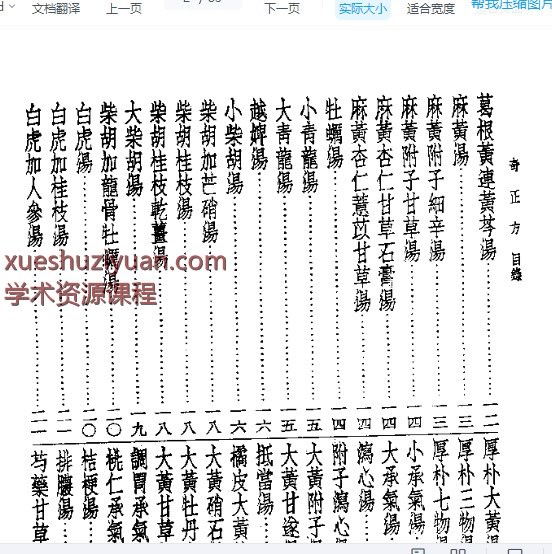 文档翻译 上一页 下一页 实际大小 适合宽度 帮我压缩图片
奇正方 目錄
葛根黃連黃芩湯……一二
麻黃湯……一三
麻黃附子細辛湯……一三
麻黃附子甘草湯……一四
麻黃杏仁甘草石膏湯……一四
麻黃杏仁薏苡甘草湯……一四
牡蠣湯……一四
小青龍湯……一五
大青龍湯……一五
越婢湯……一六
小柴胡湯……一六
柴胡加芒硝湯……一八
柴胡桂枝湯……一八
柴胡桂枝乾薑湯……一八
大柴胡湯……一九
柴胡加龍骨牡蠣湯……二〇
白虎湯……二〇
白虎加桂枝湯……二一
白虎加人參湯……二一
厚朴大黃湯
厚朴三物湯
厚朴七物湯
小承氣湯
大承氣湯
瀉心湯
附子瀉心湯
大黃附子
大黃甘遂
抵當湯
橘皮大黃
大黃硝石
大黃牡丹
大黃甘草
調胃承氣
桃仁承氣
桔梗湯
排膿湯
芍藥甘草
xueshuziyuan.com
学术资源课程